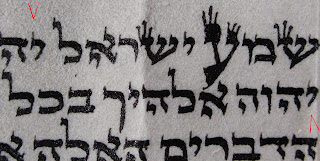 שמע ישראל יה
יהוה אלהיך בכל
הדברים האלה א